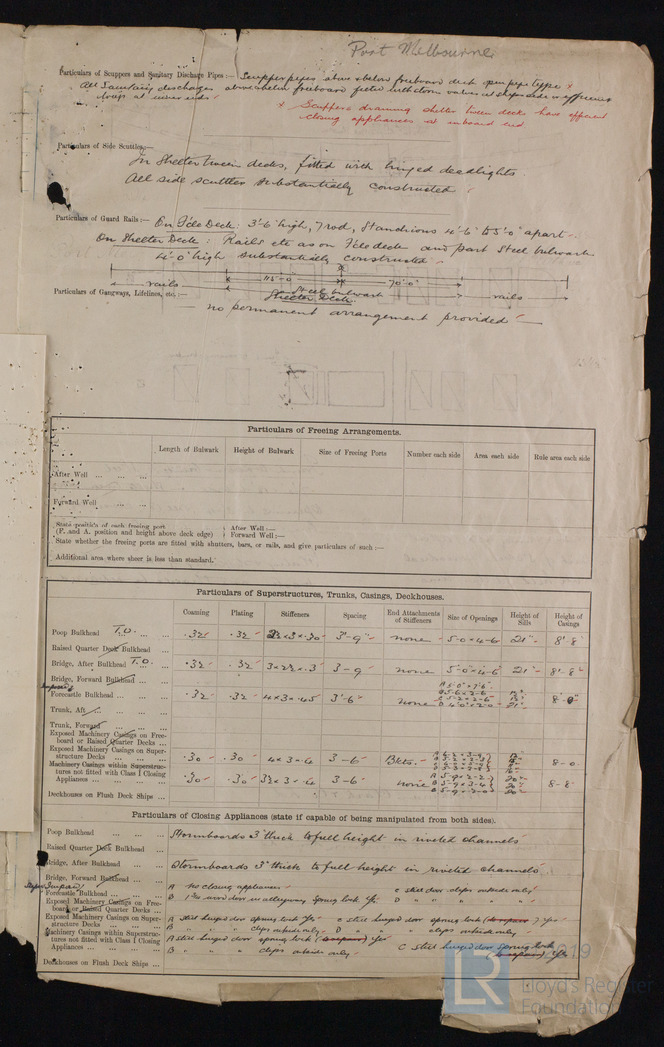 Port Melbourne
Particulars of Scuppers and Sanitary Discharge Pipes :— Scupper pipes above & below freeboard deck open pipe type ×
All Sanitary discharges above & below freeboard fitted with storm valves at ships side & efficient
× Scuppers draining shelter tween decks have efficient
closing appliances at inboard end.
Particulars of Side Scuttles:—
In Shelter tween decks, fitted with hinged deadlights.
All side scuttles substantially constructed
Particulars of Guard Rails:— On F'cle Deck: 3'-6" high, 7 rod, Stanchions 4'-6" to 5'-0" apart.
On Shelter Deck: Rails etc as on F'cle deck and part Steel bulwark
4'-0" high substantially constructed
rails 115'-0" 70'-0" rails
Steel bulwark
Shelter Deck
Particulars of Gangways, Lifelines, etc.:—
no permanent arrangement provided
Particulars of Freeing Arrangements.
Length of Bulwark Height of Bulwark Size of Freeing Ports Number each side Area each side Rule area each side
After Well ... ... ...
Forward Well ... ...
State position of each freeing port After Well :—
(F. and A. position and height above deck edge) Forward Well :—
State whether the freeing ports are fitted with shutters, bars, or rails, and give particulars of such :—
Additional area where sheer is less than standard.
Particulars of Superstructures, Trunks, Casings, Deckhouses.
Coaming Plating Stiffeners Spacing End Attachments of Stiffeners Size of Openings Height of Sills Height of Casings
Poop Bulkhead T.O. ... ... .32 .32 3'-9" none 5-0 x 4-6 21" 8'-8"
Raised Quarter Deck Bulkhead ...
Bridge, After Bulkhead T.O. ... .32 .32 3-9 none 5-0 x 4-6 21" 8'-8"
Bridge, Forward Bulkhead ...
Forecastle Bulkhead ... ... .32 .32 4 x 3 x .45 3'-6" none 21"
Trunk, Aft ... ...
Trunk, Forward ... ...
Exposed Machinery Casings on Free-
board or Raised Quarter Decks ...
Exposed Machinery Casings on Super-
structure Decks ... ... .30 .30 3-6 Bkts. 8-0
Machinery Casings within Superstruc-
tures not fitted with Class I Closing
Appliances ... ... .30 .30 3-6 none 8-8
Deckhouses on Flush Deck Ships ...
Particulars of Closing Appliances (state if capable of being manipulated from both sides).
Poop Bulkhead ... ... Stormboards 3" thick to full height in riveted channels
Raised Quarter Deck Bulkhead
Bridge, After Bulkhead ... Stormboards 3" thick to full height in riveted channels
Bridge, Forward Bulkhead ...
Forecastle Bulkhead ... ... A no closing appliances C steel door clips outside only
Exposed Machinery Casings on Free- B
board or Raised Quarter Decks ...
Exposed Machinery Casings on Super- A steel hinged door spring lock Yes C steel hinged door spring lock Yes
structure Decks ... ... B " " " clips outside only D " " " clips outside only
Machinery Casings within Superstruc-
tures not fitted with Class I Closing A steel hinged door spring lock Yes C steel hinged door spring lock Yes
Appliances ... ... B " " " clips outside only
Deckhouses on Flush Deck Ships ...
LR
2019
Lloyd's Register
Foundation